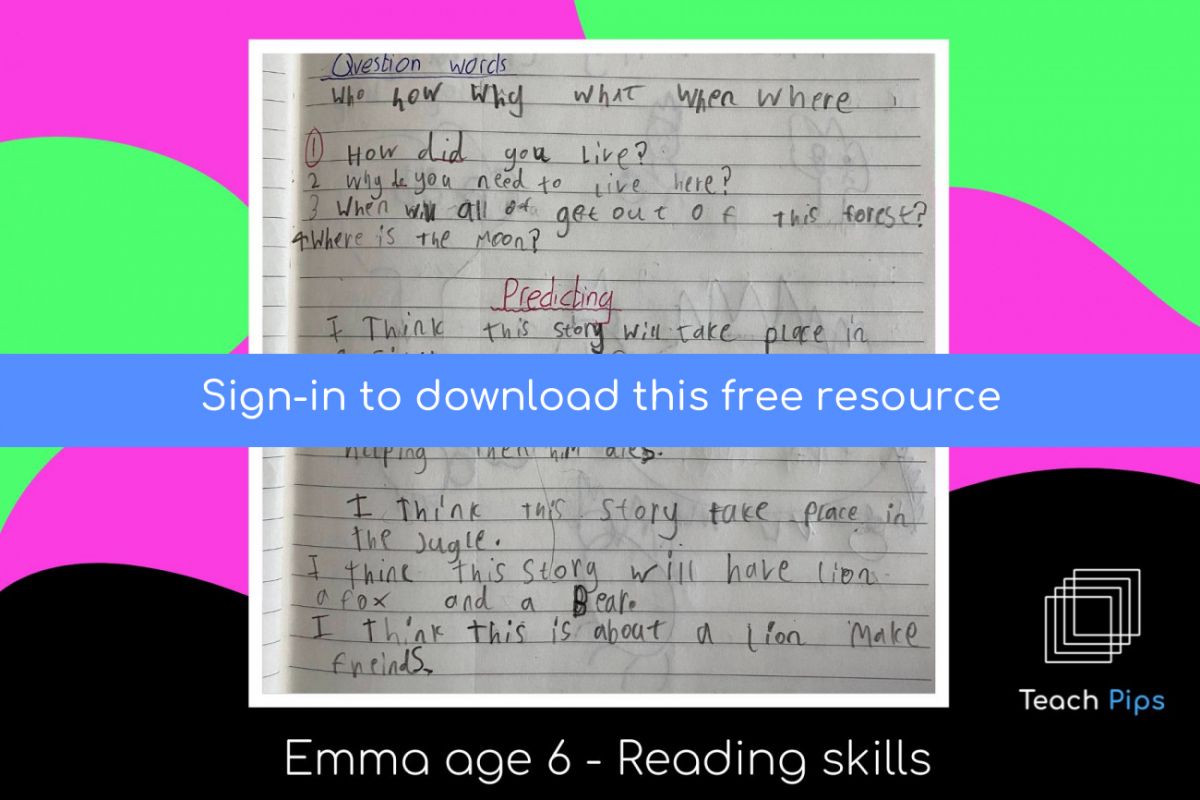 Question words
Who how Why what when where
1 How did you live?
2 Why do you need to live here?
3 When will all of get out of this forest?
4 Where is the Moon?
Predicting
I Think this story will take place in
Sign-in to download this free resource
helping then him dies.
I think this story take place in
the jugle.
I thinc this story will have lion
a fox and a Bear.
I think this is about a lion make
freinds.
Teach Pips
Emma age 6 - Reading skills